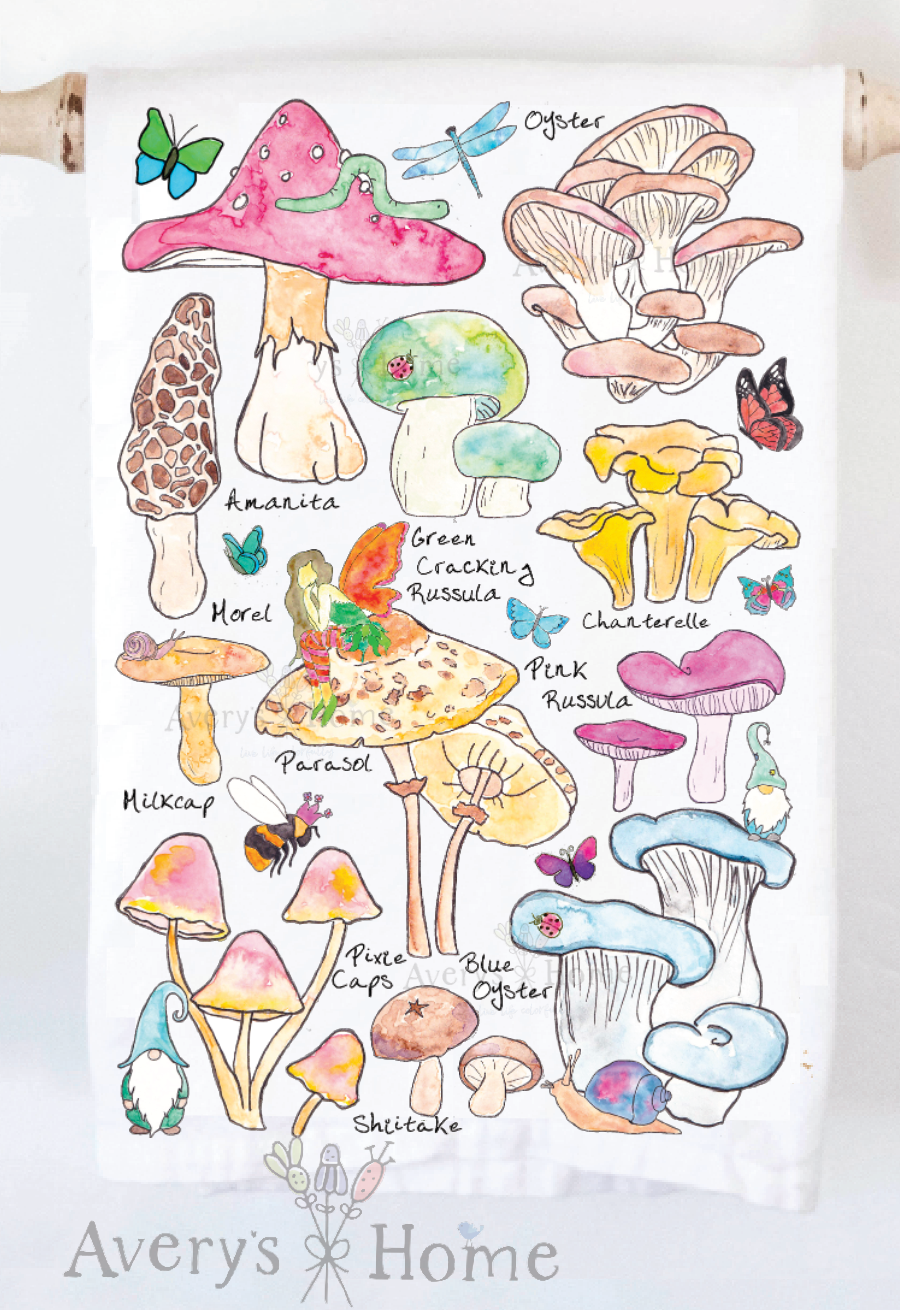 Oyster
Amanita
Green
Cracking
Russula
Morel
Chanterelle
Pink
Russula
Parasol
Milkcap
Pixie
Caps
Blue
Oyster
Shiitake
Avery's Home
Avery's Home
Avery's Home